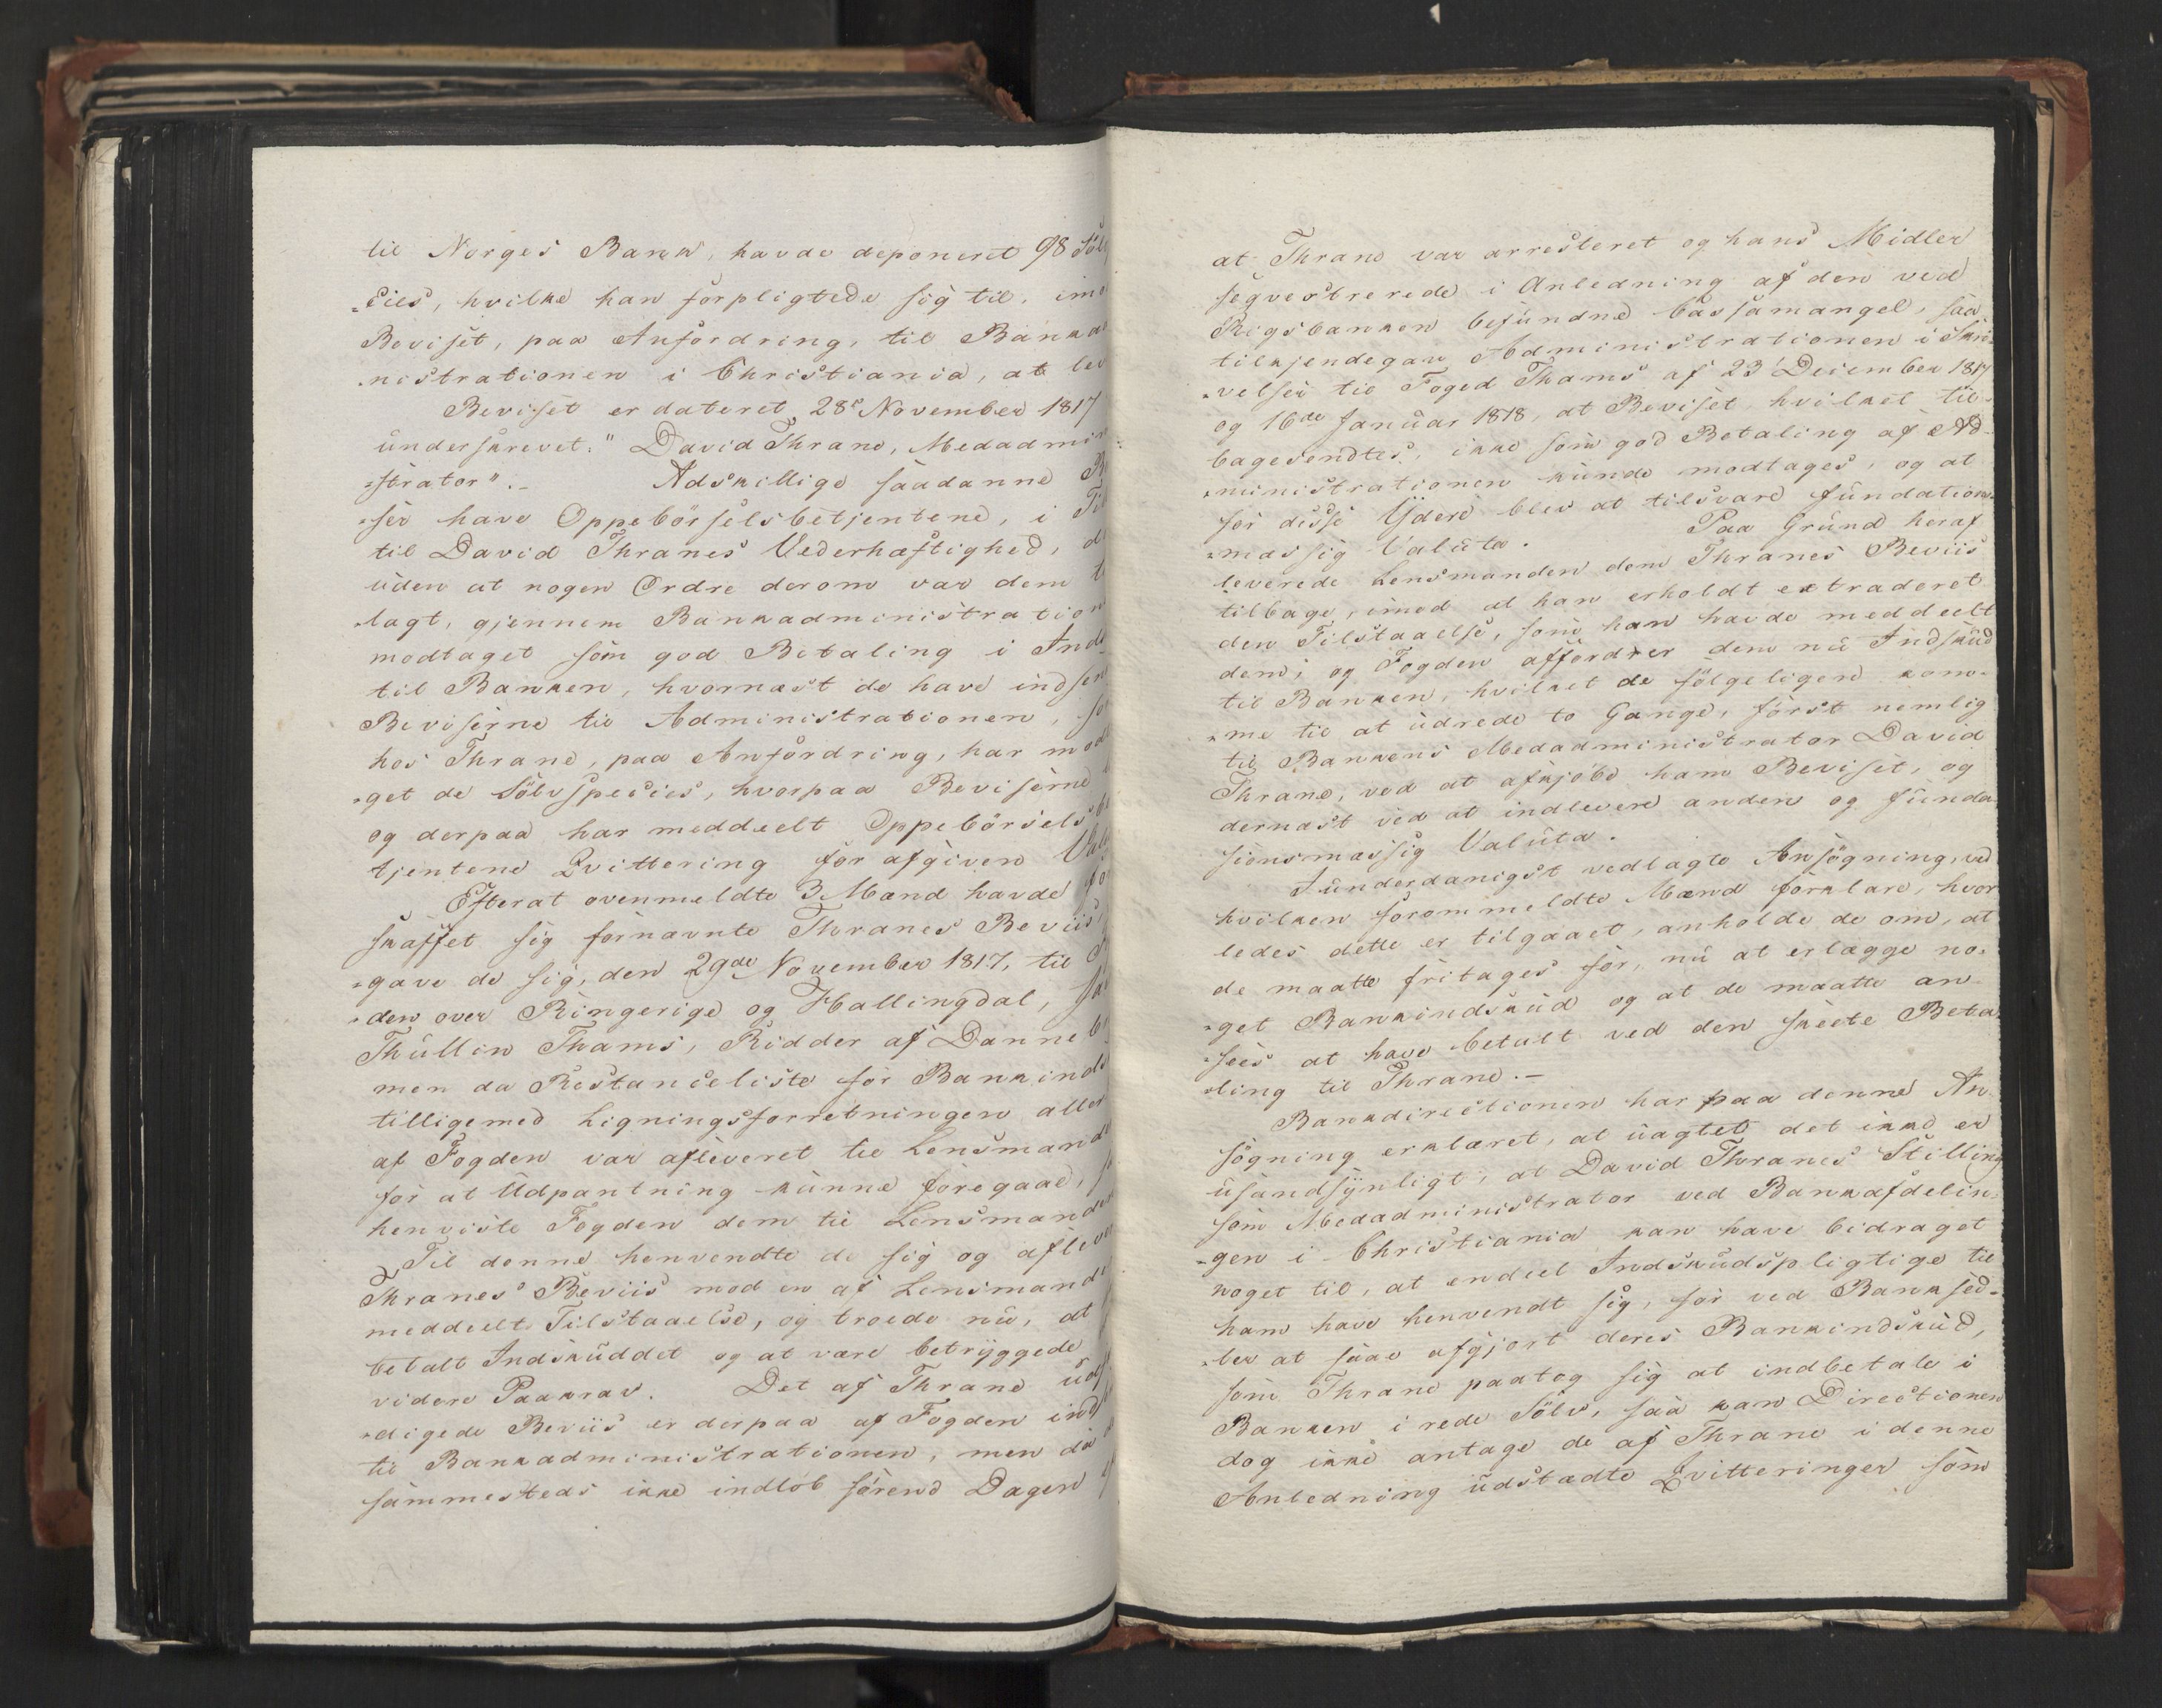 til Norges Bank, havde deponeret 98 Söl
=cies, hvilke han forpligtede sig til, imo
Beviset, paa Anfordring, til Bankad
=nistrationen i Christiania, at lev
Beviset er dateret 28de November 1817
underskrevet: "David Thrane, Medadmini
=strator".- Adskillige saadanne Be
=ser have Oppebörselsbetjentene, i Til
til David Thranes Vederhæftighed, d
uden at nogen Ordre derom var dem t
=lagt, gjennem Bankadministration
modtaget som god Betaling i Inds
til Banken, hvornæst de have indsen
Beviserne til Administrationen, so
hos Thrane, paa Anfordring, har modt
=get de Sölvspecies, hvorpaa Beviserne
og derpaa har meddeelt Oppebörselsbe
tjentene Qvittering for afgiven Val
Efterat ovenmeldte 3 Mænd havde for
skaffet sig fornævnte Thranes Beviis,
=gave de sig, den 29de November 1817, til
=den over Ringerige og Hallingdal,
Thullin Thams, Ridder af Dannebr
men da Restanceliste for Bankinds
tilligemed Ligningsforretningen aller
af Fogden var afleveret til Lensmande
for at Udpantning kunne foregaae, s
henviste Fogden dem til Lensmanden
Til denne henvendte de sig og afleve
Thranes Beviis mod en af Lensmande
meddeelt Tilstaaelse, og troede nu, at
betalt Indskuddet og at være betryggede
videre Paakrav. Det af Thrane udf
=digede Beviis er derpaa af Fogden inds
til Bankadministrationen, men da
sammesteds ikke indlöb förend Dagen
at Thrane var arresteret og hans Midler
seqvestrerede i Anledning af den ved
Rigsbanken befundne Cassamangel, saa
tilkjendegav Administrationen i Skri=
=velser til Foged Thams af 23 December 1817
og 16de Januar 1818, at Beviset, hvilket til=
bagesendtes, ikke som god Betaling af Ad=
=ministrationen kunde modtages, og at
for disse Ydere blev at tilsvare fundations=
=mæssig Valuta. Paa Grund heraf
leverede Lensmanden dem Thranes Beviis
tilbage, imod at han erholdt extraderet
den Tilstaaelse, som han havde meddeelt
dem; og Fogden affordrer dem nu Indskud
til Banken, hvilket de fölgeligen kom=
=me til at udrede to Gange, först nemlig
til Bankens Medadministrator David
Thrane, ved at afkjöbe ham Beviset, og
dernæst ved at indlevere anden og funda=
sionsmæssig Valuta.
I underdanigst vedlagte Ansögning, ved
hvilken forommeldte Mænd forklare, hvor
ledes dette er tilgaaet, anholde de om, at
de maatte fritages for, nu at erlægge no=
=get Bankindskud og at de maatte an=
=sees at have betalt ved den skeete Beta
=ling til Thrane.-
Bankdirectionen har paa denne An=
sögning erklæret, at uagtet det ikke er
usandsynligt, at David Thranes Stilling
som Medadministrator ved Bankafdelin=
=gen i Christiania kan have bidraget
noget til, at endeel Indskudspligtige til
ham have henvendt sig, for ved Banksed=
=ler at faae afgjort deres Bankindskud,
som Thrane paatog sig at indbetale i
Banken i rede Sölv, saa kan Directionen
dog ikke antage de af Thrane i denne
Anledning udstædte Qvitteringer som